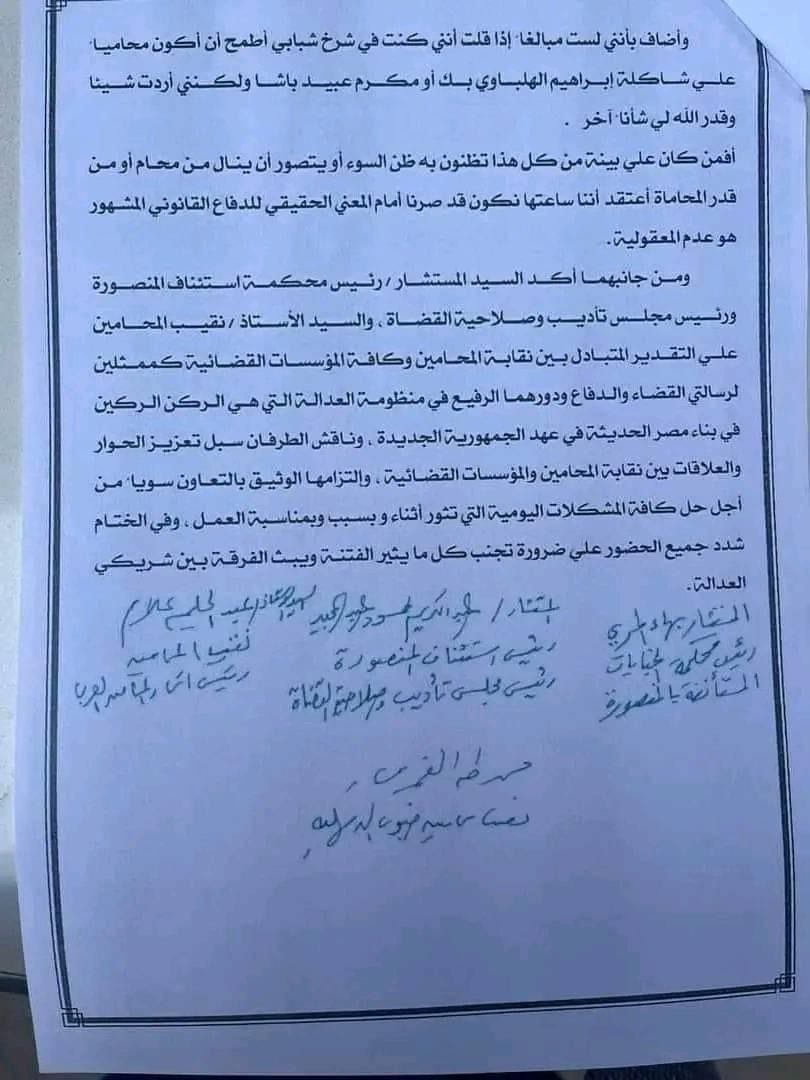 وأضاف بأنني لست مبالغا ً إذا قلت أنني كنت في شرخ شبابي أطمح أن أكون محاميا ً
علي شاكلة إبراهيم الهلباوي بك أو مكرم عبيد باشا ولكنني أردت شيئا
وقدر الله لي شأنا ً آخر .
أفمن كان علي بينة من كل هذا تظنون به ظن السوء أو يتصور أن ينال من محام أو من
قدر المحاماة أعتقد أننا ساعتها نكون قد صرنا أمام المعني الحقيقي للدفاع القانوني المشهور
هو عدم المعقولية .
ومن جانبهما أكد السيد المستشار / رئيس محكمة استئناف المنصورة
ورئيس مجلس تأديب وصلاحية القضاة ، والسيد الأستاذ / نقيب المحامين
علي التقدير المتبادل بين نقابة المحامين وكافة المؤسسات القضائية كممثلين
لرسالتي القضاء والدفاع ودورهما الرفيع في منظومة العدالة التي هي الركن الركين
في بناء مصر الحديثة في عهد الجمهورية الجديدة ، وناقش الطرفان سبل تعزيز الحوار
والعلاقات بين نقابة المحامين والمؤسسات القضائية ، وإلتزامها الوثيق بالتعاون سويا ً من
أجل حل كافة المشكلات اليومية التي تثور أثناء و بسبب وبمناسبة العمل ، وفي الختام
شدد جميع الحضور علي ضرورة تجنب كل ما يثير الفتنة ويبث الفرقة بين شريكي
العدالة .
المستشار بهاء المري
رئيس محكمة الجنايات
المستأنفة بالمنصورة
المستشار / عبد الكريم محمود عبد المجيد
رئيس استئناف المنصورة
رئيس مجلس تأديب وصلاحية القضاة
عبد الحليم علام
نقيب المحامين
رئيس اتحاد المحامين العرب